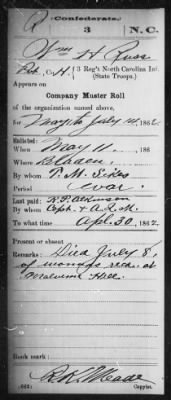 R
Confederate.
3
N.C.
Wm H Russ
Pvt, Co. H, 3 Reg't North Carolina Inf.
(State Troops.)
Appears on
Company Muster Roll
of the organization named above,
for May to July 14, 1862
Enlisted:
When May 11, 186
Where Bladen
By whom T. M. Sikes
Period war
Last paid:
By whom Capt. & A.Q.M.
To what time Apl. 30, 1862
Present or absent
Remarks: Died July 8,
of wounds recd. at
Malvern Hill.
Book mark:
R.K. Meade
Copyist.